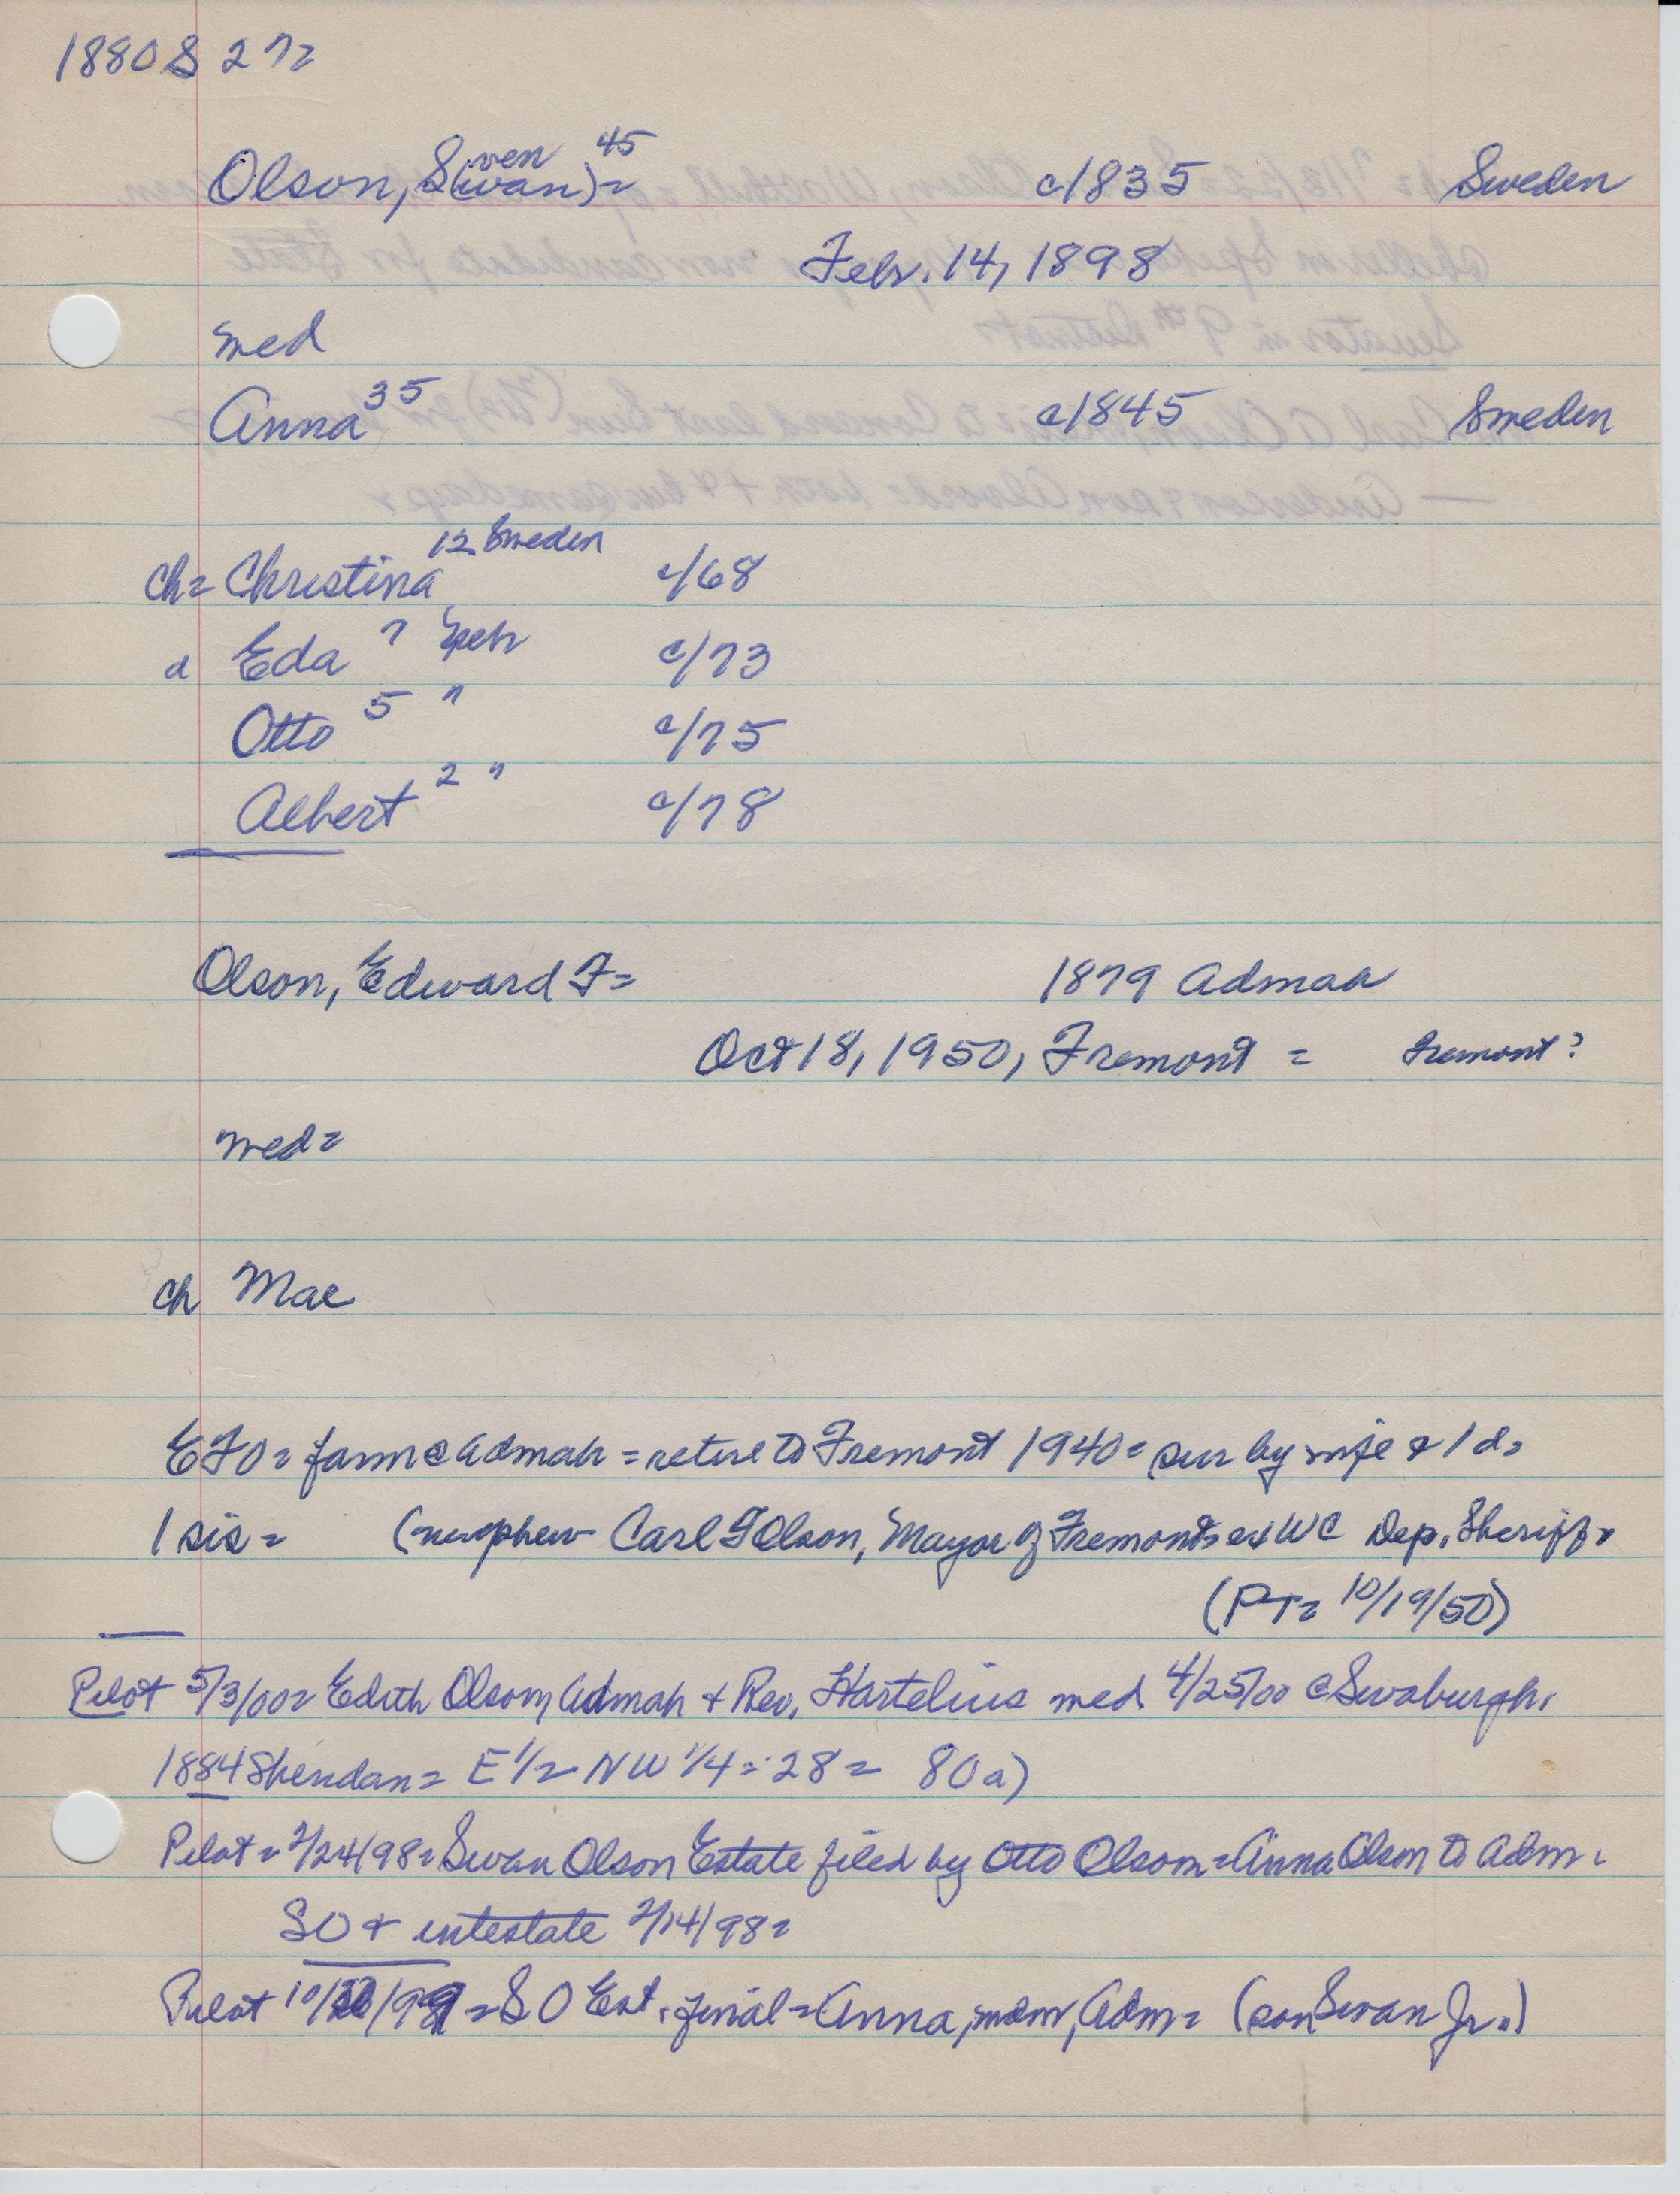 1880 S 27=
Olson, S(wan)= ven 45 c/1835 Sweden
Febr. 14, 1898
med
Anna 35 c/1845 Sweden
ch= Christina 12 Sweden c/68
d Eda 7 c/73
Otto 5 " c/75
Albert 2 " c/78
Olson, Edward F= 1879 Admah
Oct 18, 1950, Fremont = Fremont?
med=
ch Mae
EFO= farm @ Admah = retire to Fremont 1940= sur by wife & 1 d=
1 sis= (nephew Carl F Olson, Mayor of Fremont= ex WC Dep. Sheriff=
(PT= 10/19/50)
Pilot 5/3/00= Edith Olson, Admah + Rev. Hartelius med 4/25/00 @ Swaburgh.
1884 Sheridan= E 1/2 NW 1/4 = 28 = 80a)
Pilot = 2/24/98= Swan Olson Estate filed by Otto Olson= Anna Olson to Adm.
SO + intestate 2/14/98=
Pilot 10/ /99 = S O Est. final = Anna, widow, Adm= (son Swan Jr.)